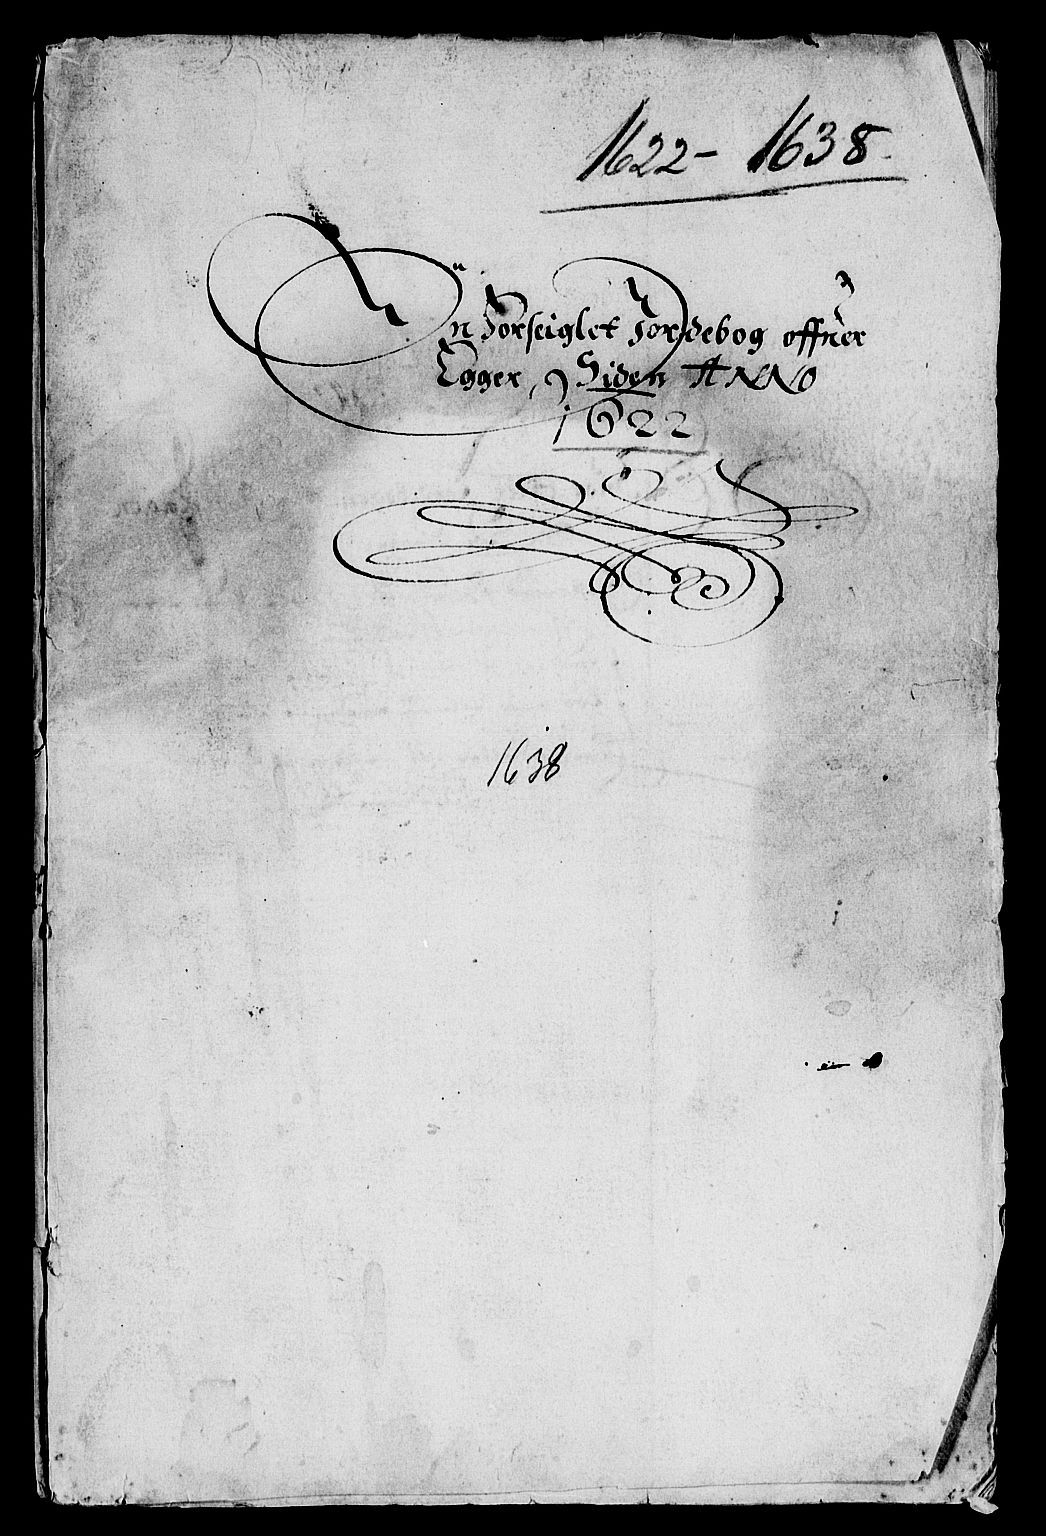 1622 - 1638.
En Forseiglet Jordebog offuer
Egger, Siden ANNO
1622
1638